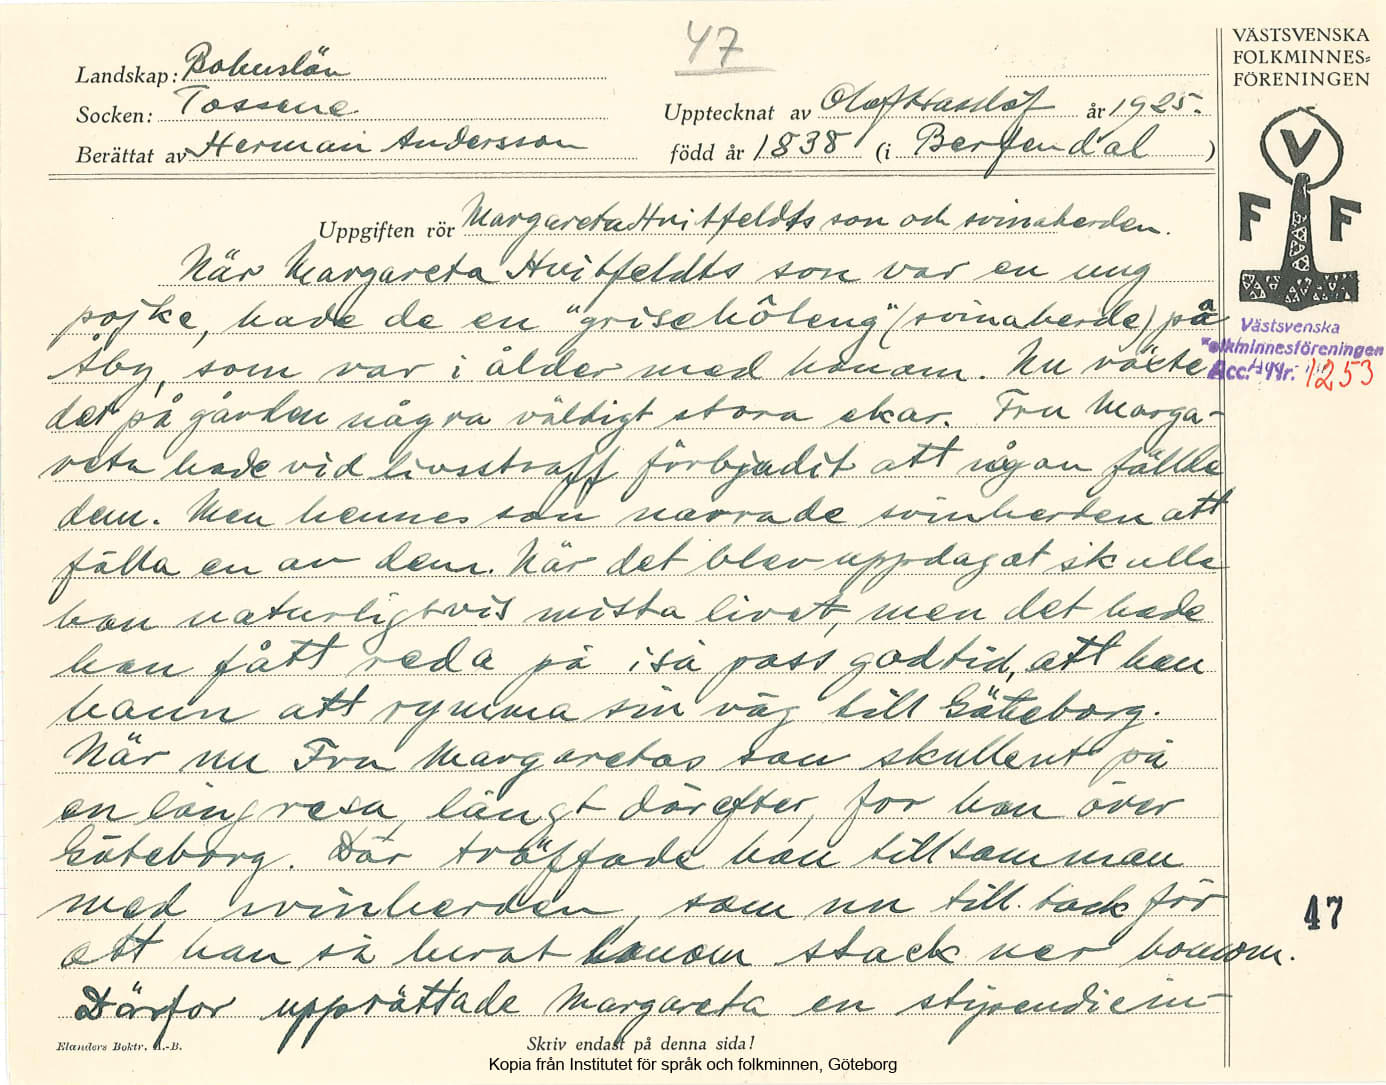 47
VÄSTSVENSKA
FOLKMINNES=
FÖRENINGEN
Landskap: Bohuslän
Socken: Tossene
Upptecknat av Olof Hasslöf år 1925.
Berättat av Herman Andersson
född år 1838 (i Berfendal)
V
F F
Uppgiften rör Margareta Hvitfeldts son och svinaherden.
När Margareta Hvitfeldts son var en ung
pojke, hade de en "grisehôleng" (svinaherde) på
Åby, som var i ålder med honom. Nu växte
det på gården några väldigt stora ekar. Fru Marga-
reta hade vid livsstraff förbjudit att någon fällde
dem. Men hennes son narrade svinherden att
fälla en av dem. När det blev uppdagat skulle
han naturligtvis mista livet, men det hade
han fått reda på i så pass god tid, att han
hann att rymma sin väg till Göteborg.
När nu Fru Margaretas son skulle ut på
en lång resa, långt därefter, for han över
Göteborg. Där träffade han tillsamman
med svinherden, som nu till tack för
att han så lurat honom stack ner honom.
Därför upprättade Margareta en stipendiein-
Västsvenska
Folkminnesföreningen
Acc. Nr. 1253
47
Elanders Boktr. A.-B.
Skriv endast på denna sida!
Kopia från Institutet för språk och folkminnen, Göteborg